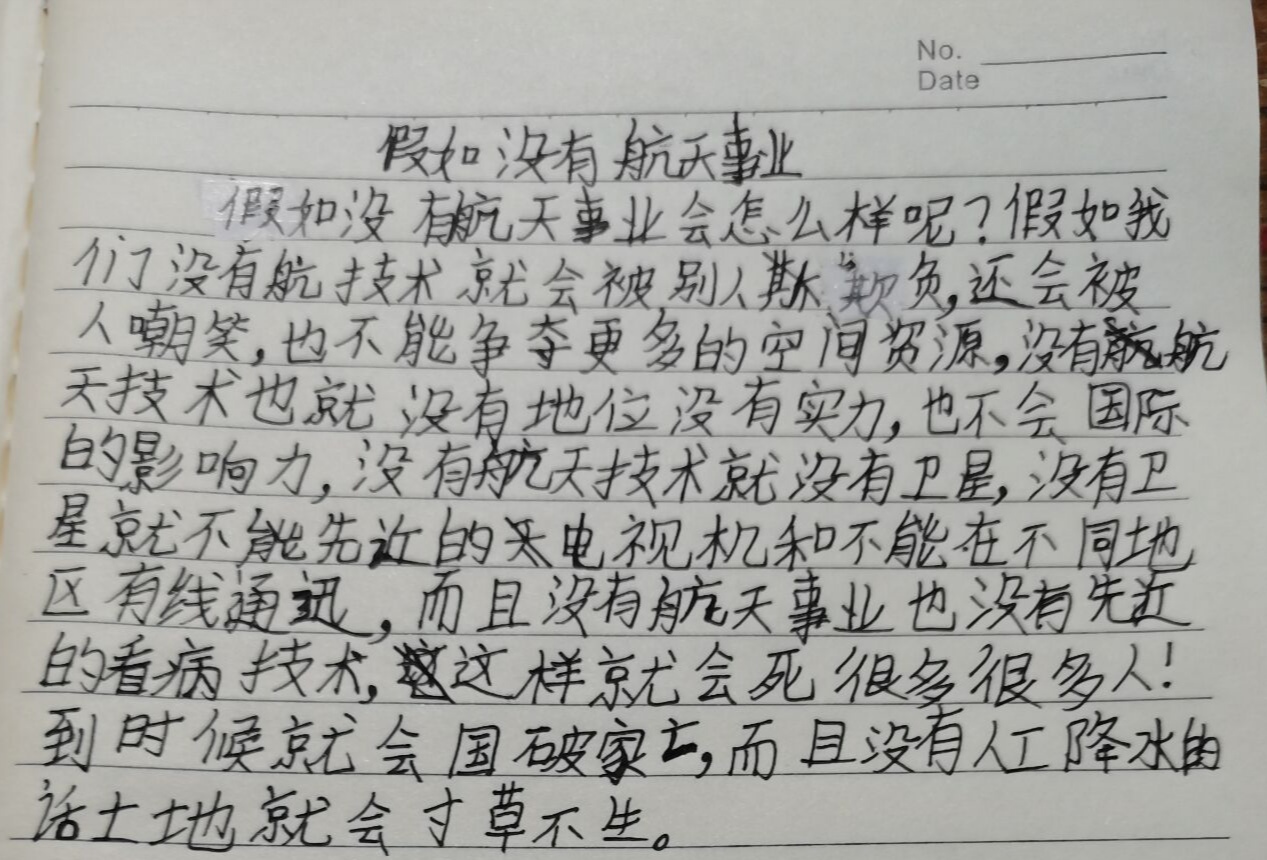 No.
Date
假如没有航天事业
假如没有航天事业会怎么样呢？假如我
们没有航技术就会被别人欺负,还会被
人嘲笑,也不能争夺更多的空间资源,没有航
天技术也就没有地位没有实力,也不会国际
的影响力,没有航天技术就没有卫星,没有卫
星就不能先近的电视机和不能在不同地
区有线通迅,而且没有航天事业也没有先近
的看病技术,这样就会死很多很多人!
到时候就会国破家亡,而且没有人工降水的
话土地就会寸草不生。